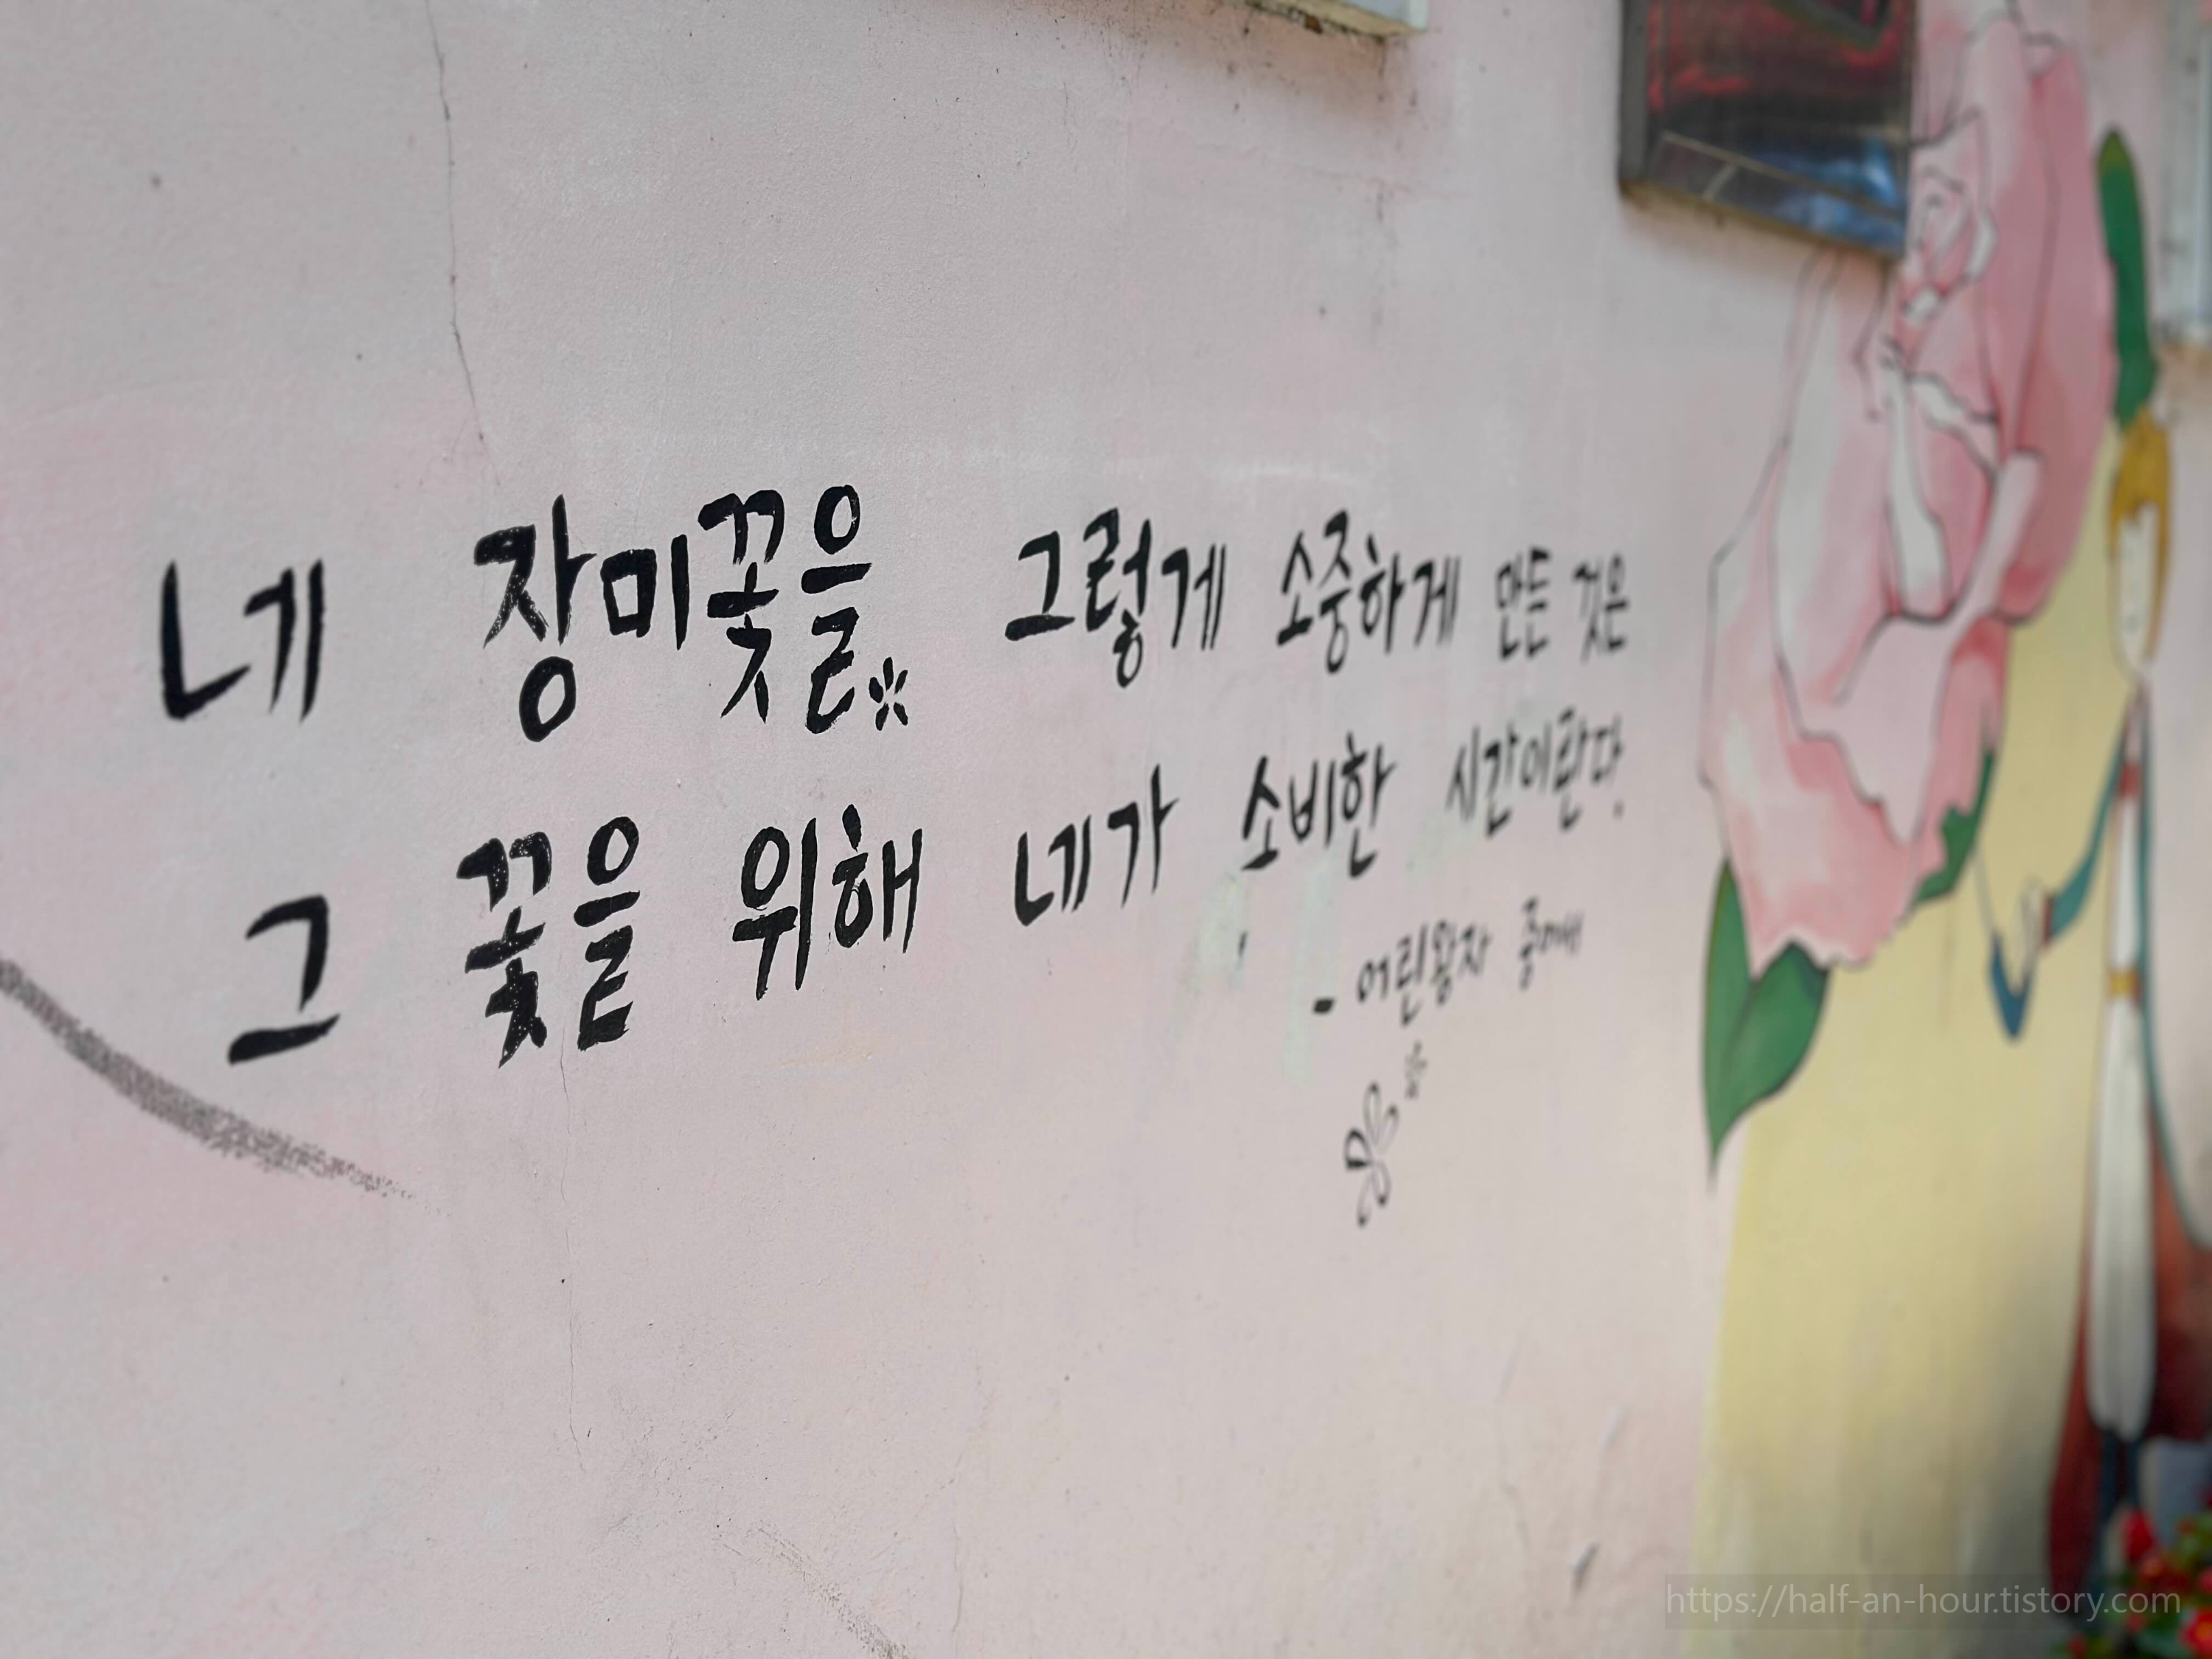 네 장미꽃을 그렇게 소중하게 만든 것은
그 꽃을 위해 네가 소비한 시간이란다.
- 어린왕자 중에서
https://half-an-hour.tistory.com